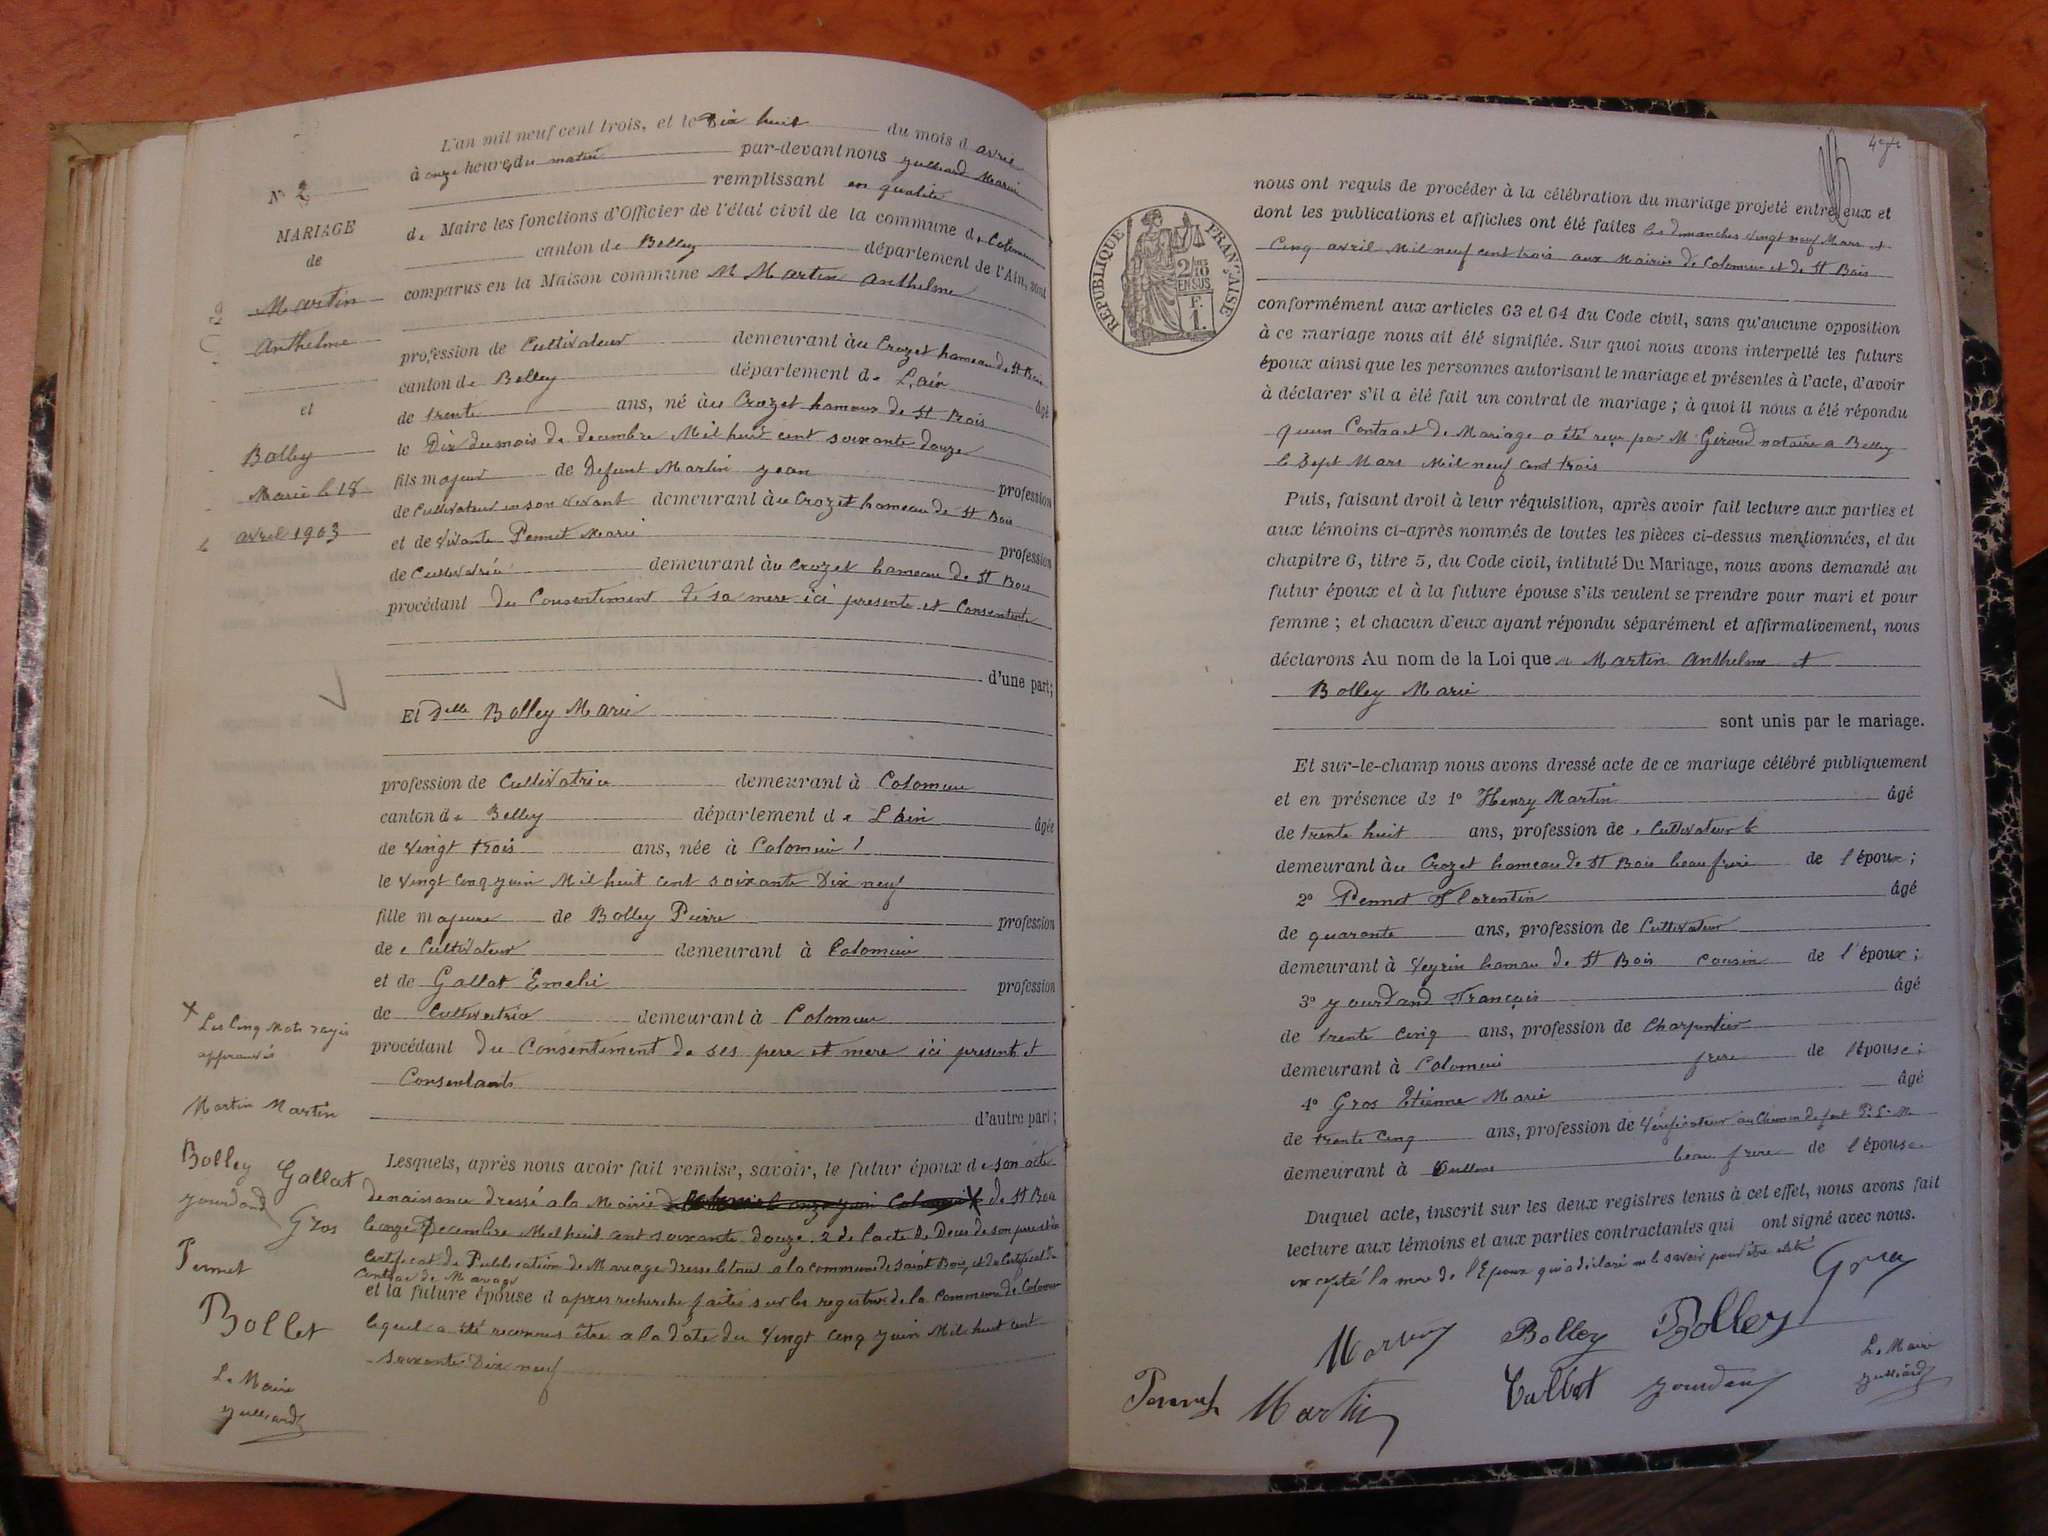 L'an mil neuf cent trois, et le Dix huit du mois d avril
à onze heures du matin par-devant nous Julliard Marie
remplissant en qualité
de Maire les fonctions d'Officier de l'état civil de la commune de Colomieu
canton de Belley département de l'Ain, sont
comparus en la Maison commune M Martin Anthelme
profession de Cultivateur demeurant au Crozet hameau de St Bois
canton de Belley département de L'ain âgé
de trente ans, né au Crozet hameau de St Bois
le Dix du mois de decembre Mil huit cent soixante douze
fils majeur de Defunt Martin jean profession
de Cultivateur en son vivant demeurant au Crozet hameau de St Bois
et de vivante Pennet Marie profession
de Cultivatrice demeurant au Crozet hameau de St Bois
procédant du Consentement de sa mere ici presente et Consentente
d'une part;
Et Delle Bolley Marie
profession de Cultivatrice demeurant à Colomieu
canton de Belley département de L'Ain âgée
de vingt trois ans, née à Colomieu
le vingt cinq juin Mil huit cent soixante Dix neuf
fille majeure de Bolley Pierre profession
de Cultivateur demeurant à Colomieu
et de Gallat Emelie profession
de Cultivatrice demeurant à Colomieu
procédant du Consentement de ses pere et mere ici presents et
Consentants
d'autre part;
Lesquels, après nous avoir fait remise, savoir, le futur époux de son acte
de naissance dressé a la Mairie de St Bois
le onze Decembre Mil huit cent soixante douze 2 de l'acte de Deces de son pere
Certificat de Publication de Mariage dressé a la commune de saint Bois, et du Certificat de
Contrat de Mariage
et la future épouse d apres recherche faites sur les registres de la Commune de Colomieu
lequel a été reconnus être a la date du vingt cinq juin Mil huit cent
soixante Dix neuf
N° 2
MARIAGE
de
Martin
Anthelme
et
Bolley
Marie le 18
avril 1903
X Les Cinq Mots rayés
approuvés
Martin Martin
Bolley Gallat
Jourdand Gros
Pernet
Bollet
Le Maire
Julliard
RÉPUBLIQUE FRANÇAISE
2/10 EN SUS
F. 1.
nous ont requis de procéder à la célébration du mariage projeté entre eux et
dont les publications et affiches ont été faites les dimanches vingt neuf Mars et
Cinq avril Mil neuf cent trois aux Mairies de Colomieu et de St Bois
conformément aux articles 63 et 64 du Code civil, sans qu'aucune opposition
à ce mariage nous ait été signifiée. Sur quoi nous avons interpellé les futurs
époux ainsi que les personnes autorisant le mariage et présentes à l'acte, d'avoir
à déclarer s'il a été fait un contrat de mariage; à quoi il nous a été répondu
quun Contract de Mariage a été reçu par Mr Giroud notaire a Belley
le Sept Mars Mil neuf cent trois
Puis, faisant droit à leur réquisition, après avoir fait lecture aux parties et
aux témoins ci-après nommés de toutes les pièces ci-dessus mentionnées, et du
chapitre 6, titre 5, du Code civil, intitulé Du Mariage, nous avons demandé au
futur époux et à la future épouse s'ils veulent se prendre pour mari et pour
femme; et chacun d'eux ayant répondu séparément et affirmativement, nous
déclarons Au nom de la Loi que Martin Anthelme et
Bolley Marie
sont unis par le mariage.
Et sur-le-champ nous avons dressé acte de ce mariage célébré publiquement
et en présence de 1° Henry Martin âgé
de trente huit ans, profession de Cultivateur
demeurant au Crozet hameau de St Bois beau frere de l'époux;
2° Pennet Florentin âgé
de quarante ans, profession de Cultivateur
demeurant à Veyrin hamau de St Bois Cousin de l'époux;
3° Jourdand François âgé
de trente Cinq ans, profession de Charpentier
demeurant à Colomieu frere de l'épouse;
4° Gros Etienne Marie âgé
de trente Cinq ans, profession de Vérificateur au Chemin de fert P. L. M.
demeurant à Oullins beau frere de l'épouse
Duquel acte, inscrit sur les deux registres tenus à cet effet, nous avons fait
lecture aux témoins et aux parties contractantes qui ont signé avec nous.
excepté la mere de l'Epoux qui a déclaré ne le savoir
Gros
Martin Bolley Bolley
Le Maire
Julliard
Martin Gallat Jourdand